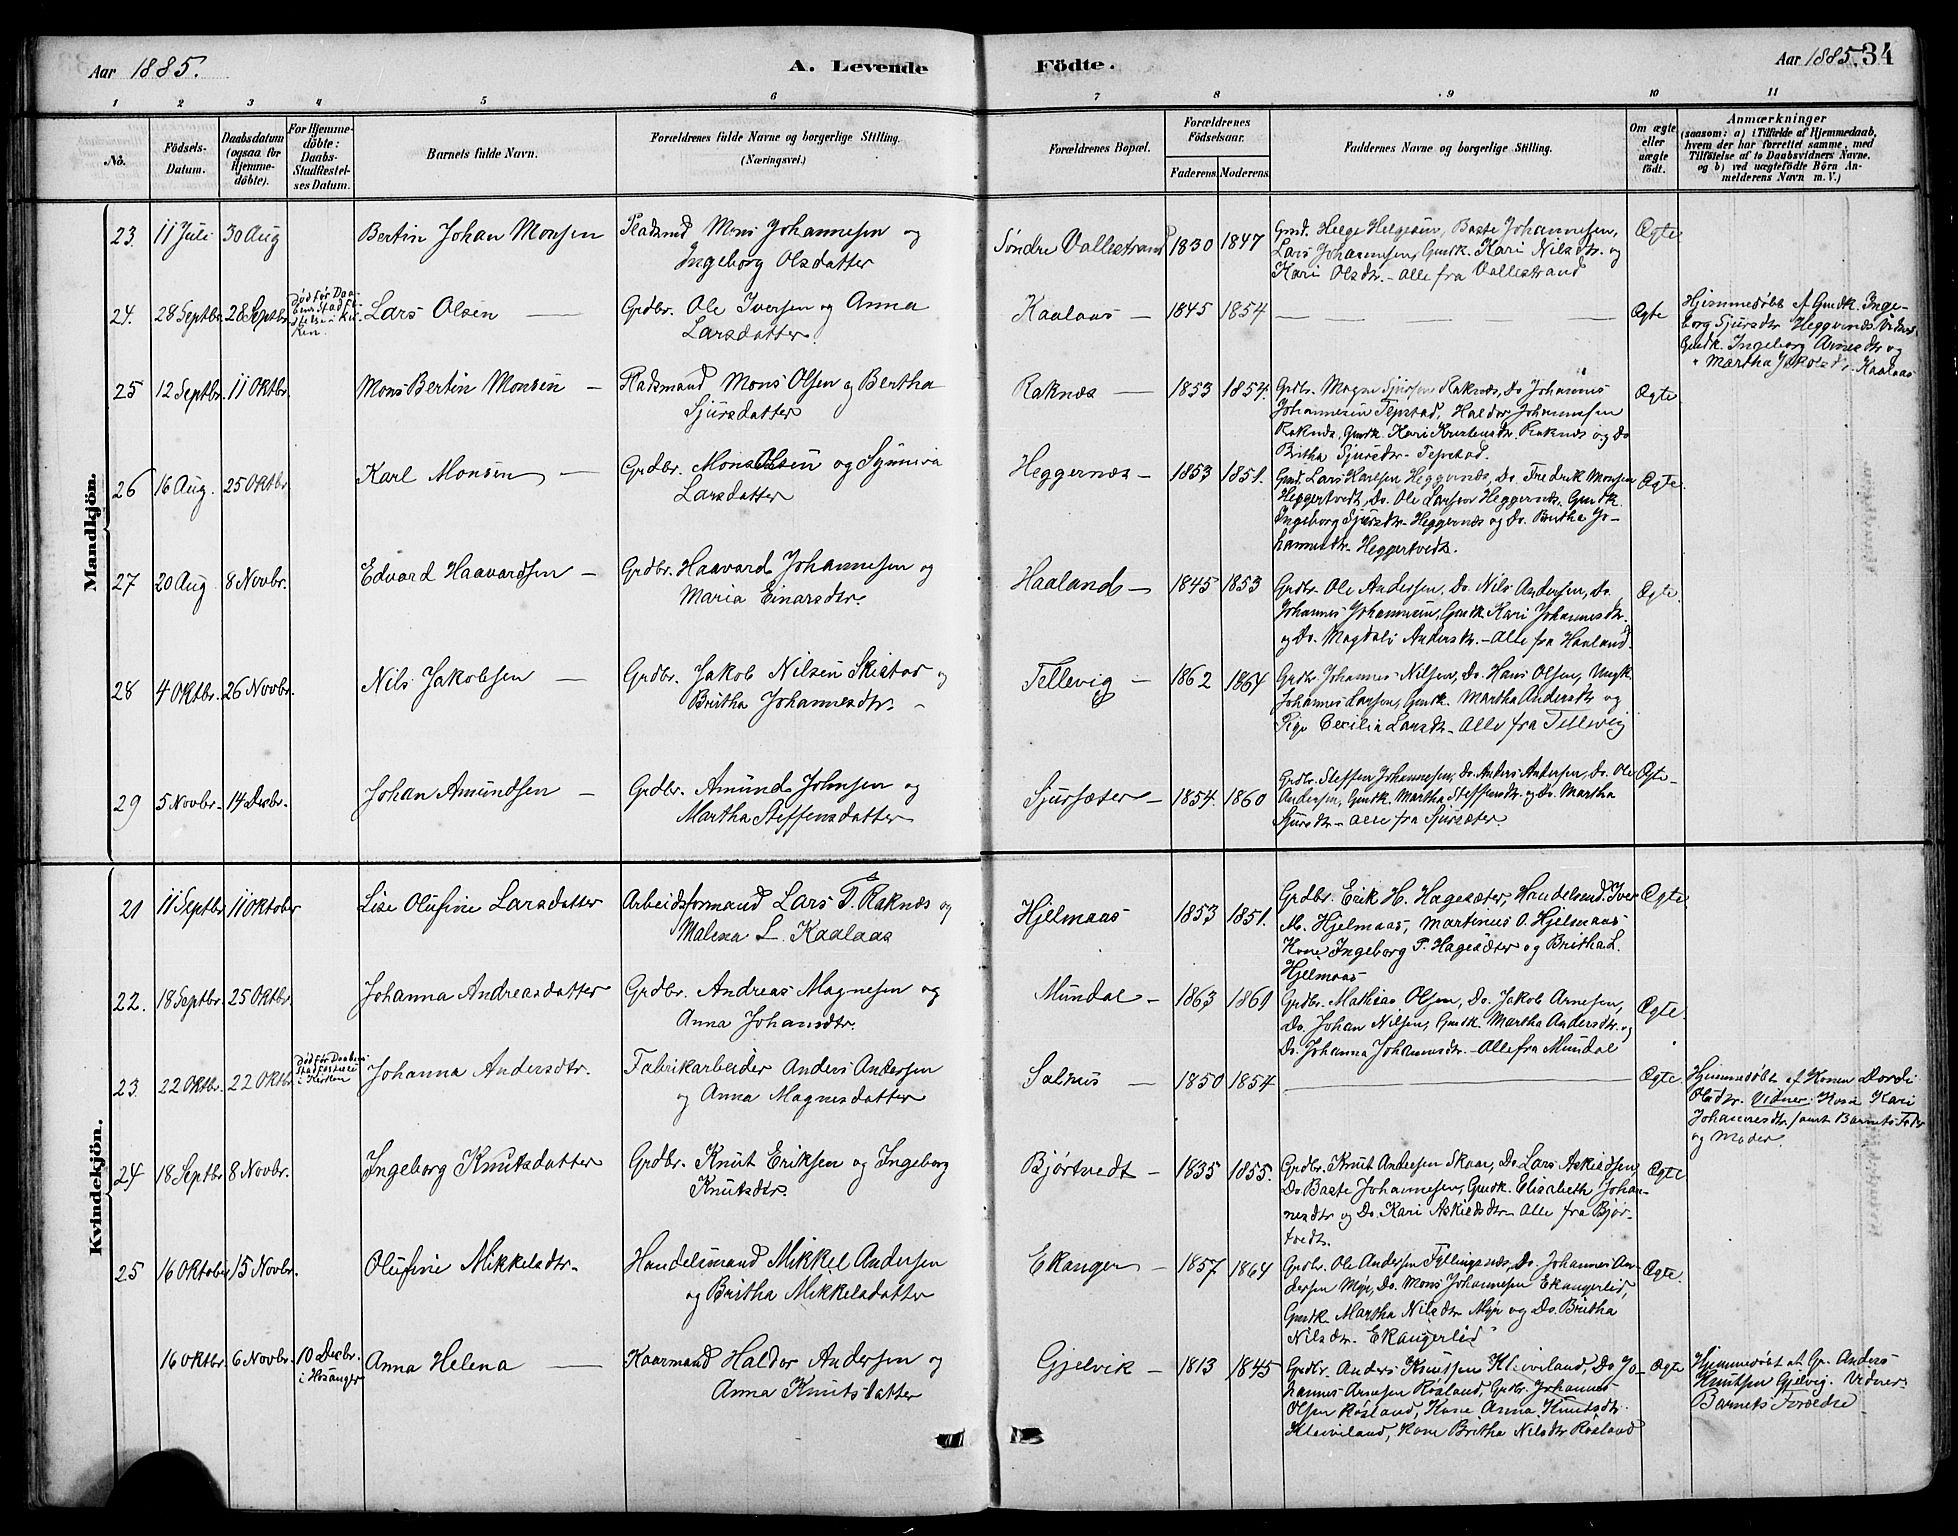 Aar 1885.
A. Levende Födte.
Aar 1885. 34
1 2 3 4 5 6 7 8 9 10 11
No.
Födsels-
Datum.
Daabsdatum
(ogsaa for
Hjemme-
döbte).
For Hjemme-
döbte:
Daabs-
Stadfæstel-
ses Datum.
Barnets fulde Navn.
Forældrenes fulde Navne og borgerlige Stilling.
(Næringsvei.)
Forældrenes Bopæl.
Forældrenes
Födselsaar.
Faderens. Moderens.
Faddernes Navne og borgerlige Stilling.
Om ægte
eller
uægte
födt.
Anmærkninger
(saasom: a) i Tilfælde af Hjemmedaab,
hvem der har forrettet samme, med
Tilföielse af to Daabsvidners Navne,
og b) ved uægtefödte Börn An-
melderens Navn m. V.)
Mandkjön.
23. 11 Juli 30 Aug Bertin Johan Monsen
Pladsmd Mons Johannesen og
Ingeborg Olsdatter
Søndre Vallestrand 1830 1847
Gmd. Helge Helgesen, Baste Johannesen,
Lars Johannesen, Gmdk. Kari Nilsdtr. og
Kari Olsdtr. - Alle fra Vallestrand
Ægte
24. 28 Septbr. 28 Septbr.
Død før Daa-
bens Stadfæ-
stelse i Kir-
ken
Lars Olsen —
Grdbr. Ole Iversen og Anna
Larsdatter
Kaalaas — 1845 1854 — — — —
Ægte
Hjemmedøbt af Gmdk. Inge-
borg Sjursdtr Heggernæs Vidner
Gmdk. Ingeborg Arnesdtr og
" Martha Jakobsdtr. Kaalaas
25 12 Septbr. 11 Oktbr. Mons Bertin Monsen —
Pladsmand Mons Olsen og Bertha
Sjursdatter
Raknæs — 1853 1854.
Grdbr. Magne Sjursen Raknæs, Do Johannes
Johannesen Tepstad, Haldor Johannesen
Raknæs, Gmdk. Kari Knutsdtr. Raknæs og Do
Britha Sjursdtr. Tepstad.
Ægte
26 16 Aug. 25 Oktbr. Karl Monsen —
Grdbr. Mons Olsen og Synneva
Larsdatter
Heggernæs — 1853 1851.
Gmd. Lars Karlsen Heggernæs, Do. Fredrik Monsen
Heggertvedt, Do. Ole Larsen Heggernæs, Gmdk
Ingeborg Sjursdtr. Heggernæs og Do. Britha Jo-
hannesdtr. Heggertvedt.
Ægte
27 20 Aug 8 Novbr. Edvard Haavardsen —
Grdbr. Haavard Johannesen og
Maria Einarsdtr.
Haaland — 1845 1853
Grdbr. Ole Andersen, Do. Nils Andersen, Do.
Johannes Johannesen, Gmdk Kari Johannesdtr.
og Do. Magdali Andersdtr. - Alle fra Haaland
Ægte.
28 4 Oktbr. 26 Novbr. Nils Jakobsen —
Grdbr. Jakob Nilsen Skistad og
Britha Johannesdtr. -
Tellevig — 1862 1864
Grdbr. Johannes Nilsen, Do. Hans Olsen, Ungk.
Johannes Larsen, Gmdk. Martha Andersdtr og
Pige Cecilia Larsdtr. - Alle fra Tellevig
Ægte.
29 5 Novbr. 14 Decbr. Johan Amundsen —
Grdbr. Amund Johnsen og
Martha Steffensdatter
Sjursæter — 1854. 1860
Grdbr. Steffen Johannesen, Do. Anders Andersen, Do. Ole
Andersen, Gmdk. Martha Steffensdtr. og Do. Martha
Sjursdtr. - Alle fra Sjursæter.
Ægte
Kvindekjön.
21 11 Septbr 11 Oktober Lise Olufine Larsdatter
Arbeidsformand Lars T. Raknæs og
Malena L. Kaalaas
Hjelmaas 1853 1851.
Grdbr. Erik H. Hagesæter, Handelsmd. Iver
M. Hjelmaas, Martinus O. Hjelmaas
Kone Ingeborg P. Hagesæter og Britha L.
Hjelmaas
Ægte
22. 18 Septbr. 25 Oktbr. Johanna Andreasdatter
Grdbr. Andreas Magnesen og
Anna Johansdtr.
Mundal — 1863 1861
Grdbr. Mathias Olsen, Do. Jakob Arnesen,
Do. Johan Nilsen, Gmdk. Martha Andersdtr. og
Do. Johanna Johannesdtr. - Alle fra Mundal
Ægte.
23. 22 Oktbr. 22 Oktbr.
Død før Daabens
Stadfæstelse
i Kirken
Johanna Andersdtr.
Fabrikarbeider Anders Andersen
og Anna Magnesdatter
Salhus — 1850 1854 —
Ægte.
Hjemmedøbt af Konen Dordi
Olsdtr. Vidner: Kone Kari
Johannesdtr samt Barnets Fader
og Moder
24 18 Septbr 8 Novbr. Ingeborg Knutsdatter
Grdbr. Knut Eriksen og Ingeborg
Knutsdtr.
Bjørtvedt — 1835 1855.
Grdbr. Knut Andersen Skaar, Do Lars Askildsen,
Do Baste Johannesen, Gmdk. Elisabeth Johan-
nesdtr og Do. Kari Askildsdtr. - Alle fra Bjør-
tvedt.
Ægte
25 16 Oktober 15 Novbr. Olufine Mikkelsdtr.
Handelsmand Mikkel Andersen
og Britha Mikkelsdatter
Ekanger — 1857 1864
Grdbr. Ole Andersen Fyllingsnæs, Do. Johannes An-
dersen Myr, Do. Mons Johannesen Ekangerlid,
Gmdk. Martha Nilsdtr Myr og Do. Britha
Nilsdtr. Ekangerlid
Ægte.
16 Oktbr. 6 Novbr. 10 Decbr.
i Hosanger
Anna Helena —
Kaarmand Haldor Andersen og
Anna Knutsdatter
Gjelvik — 1813 1845
Grdbr. Anders Knutsen Kleiveland, Do Jo-
hannes Arnesen Røsland, Grdbr. Johannes
Olsen Røsland, Kone Anna Knutsdtr.
Kleiveland, Kone Britha Nilsdtr Røsland
Ægte
Hjemmedøbt af Gr. Anders
Knutsen Gjelvig. Vidner
Barnets Forældre